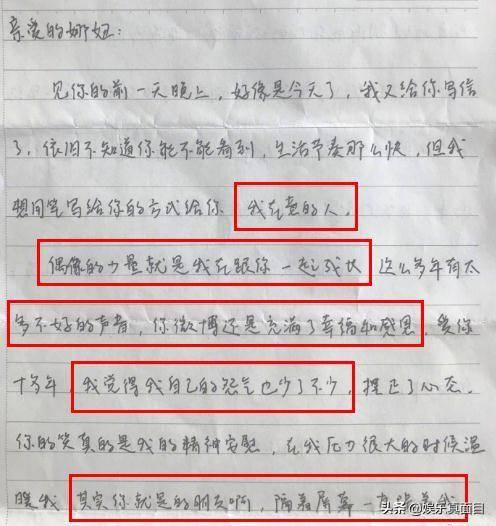 亲爱的娜妞:
见你的前一天晚上,好像是今天了,我又给你写信
了,依旧不知道你能不能看到,生活节奏那么快,但我
想用笔写给你的方式给你 我在意的人。
偶像的力量就是我在跟你一起成长 这么多年有太
多不好的声音,你微博还是充满了幸福和感恩,爱你
十多年,我觉得我自己的怨气也少了不少,摆正了心态。
你的笑真的是我的精神安慰,在我压力很大的时候温
暖我 其实你就是的朋友啊,隔着屏幕一直陪着我
头条 @娱乐真面目